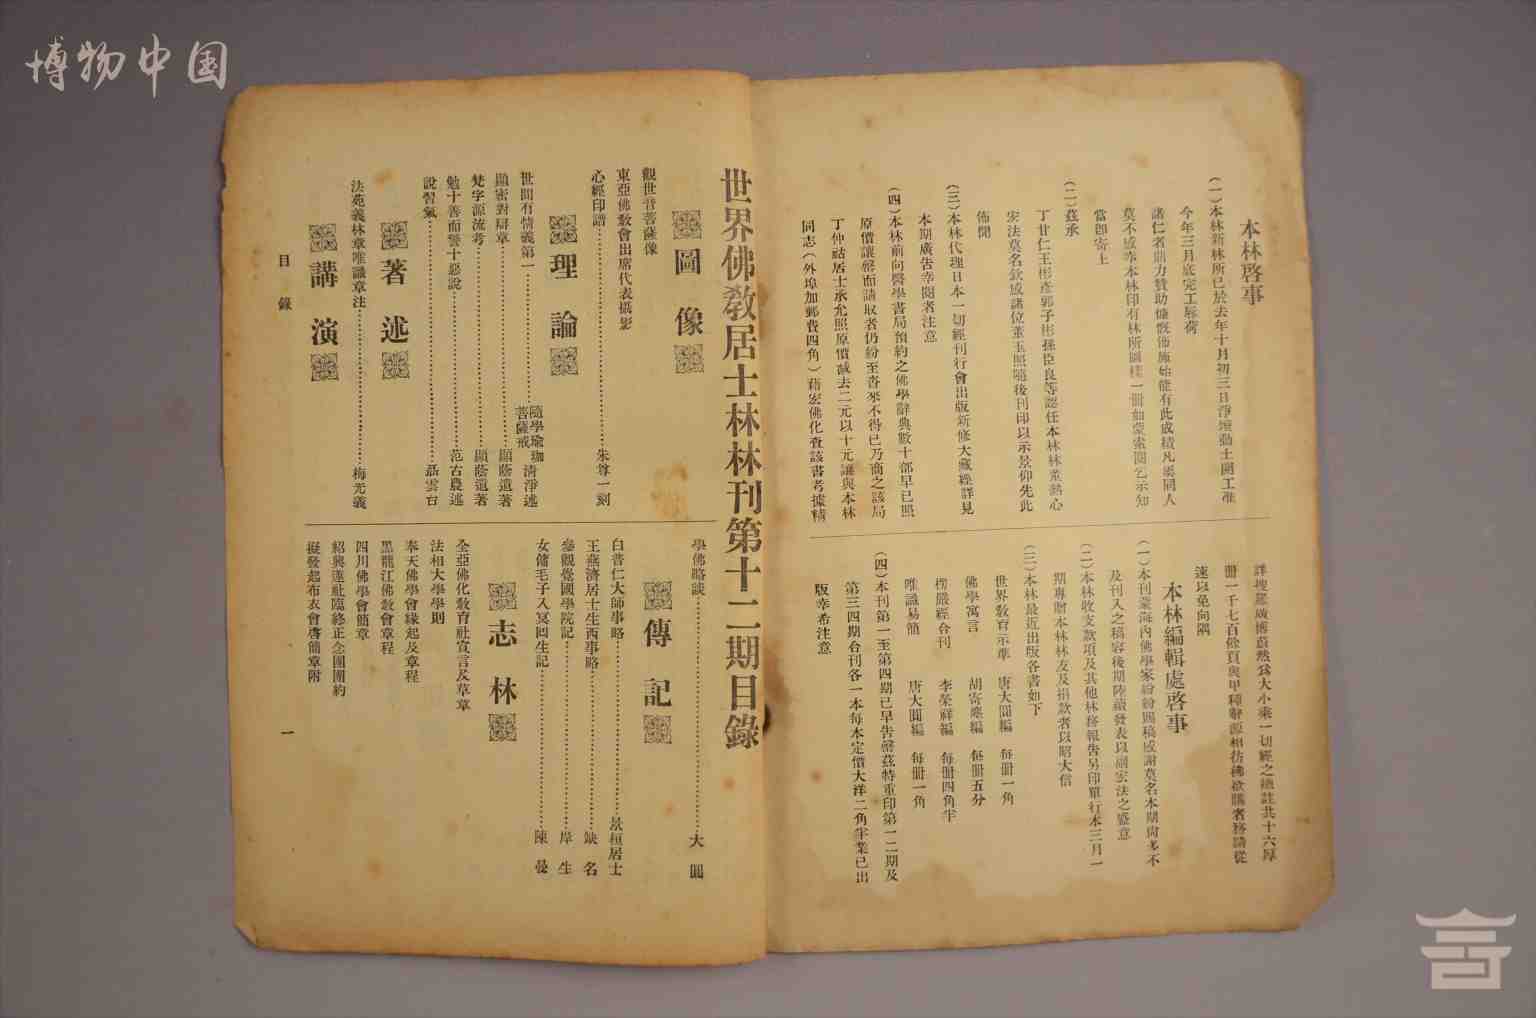 博物中国
本林啓事
(一)本林新林所已於去年十月初三日淨壇動土開工准
今年三月底完工辱荷
諸仁者鼎力贊助慷慨佈施始能有此成積凡屬同人
莫不感幸本林印有林所圖樣一冊如蒙索閱乞示知
當即寄上
(二)茲承
丁廿仁王彬彥郭子彬孫臣良等認任本林林董熱心
宏法莫名欽感諸位董玉照隨後刊印以示景仰先此
佈聞
(三)本林代理日本一切經刊行會出版新修大藏經詳見
本期廣告幸閱者注意
(四)本林前向醫學書局預約之佛學辭典數十部早已照
原價讓罄而請取者仍紛至沓來不得已乃商之該局
丁仲祜居士承允照原價減去二元以十元讓與本林
同志(外埠加郵費四角)藉宏佛化查該書考據精
詳搜羅廣博蔚然爲大小乘一切經之總註共十六厚
冊一千七百餘頁與甲種辭源相彷彿欲購者務請從
速以免向隅
本林編輯處啓事
(一)本刊業海內佛學家紛紛賜稿感謝莫名本期尙多不
及刊入之稿容後期陸續發表以副宏法之盛意
(二)本林收支款項及其他林務報告另印單行本三月一
期專贈本林林友及捐款者以昭大信
(三)本林最近出版各書如下
世界敎育示準 唐大圓編 每冊一角
佛學寓言 胡寄塵編 每冊五分
楞嚴經合刊 李榮祥編 每冊四角半
唯識易簡 唐大圓編 每冊一角
(四)本刊第一至第四期已早告罄茲特重印第一二期及
第三四期合刊各一本每本定價大洋二角半業已出
版幸希注意
世界佛敎居士林林刊第十二期目錄
圖像
觀世音菩薩像
東亞佛敎會出席代表攝影
心經印譜……朱尊一刻
理論
世間有情義第一……隨學瑜珈菩薩戒 清淨述
顯密對辯章……顯蔭遺著
梵字源流考……顯蔭遺著
勉十善而警十惡說……范古農述
說習氣……聶雲台
著述
法苑義林章唯識章注……梅光羲
講演
學佛略談……大圓
傳記
白普仁大師事略……景桓居士
王燕濟居士生西事略……缺名
參觀覺國學院記……岸生
女傭毛子入冥囘生記……陳曼
志林
全亞佛化敎育社宣言及草章
法相大學學則
奉天佛學會緣起及章程
黑龍江佛敎會章程
四川佛學會簡章
紹興蓮社臨終正念團團約
擬發起布衣會啓簡章附
目錄
一